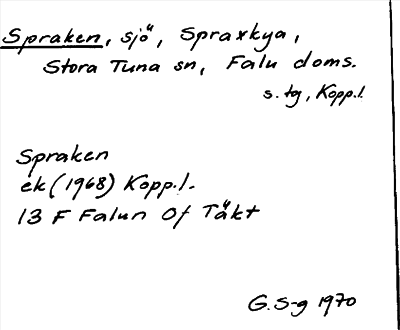 Spraken, sjö, Spraxkya,
Stora Tuna sn, Falu doms.
s. tg, Kopp.l.
Spraken
ek (1968) Kopp.l.
13 F Falun Of Täkt
G. S-g 1970